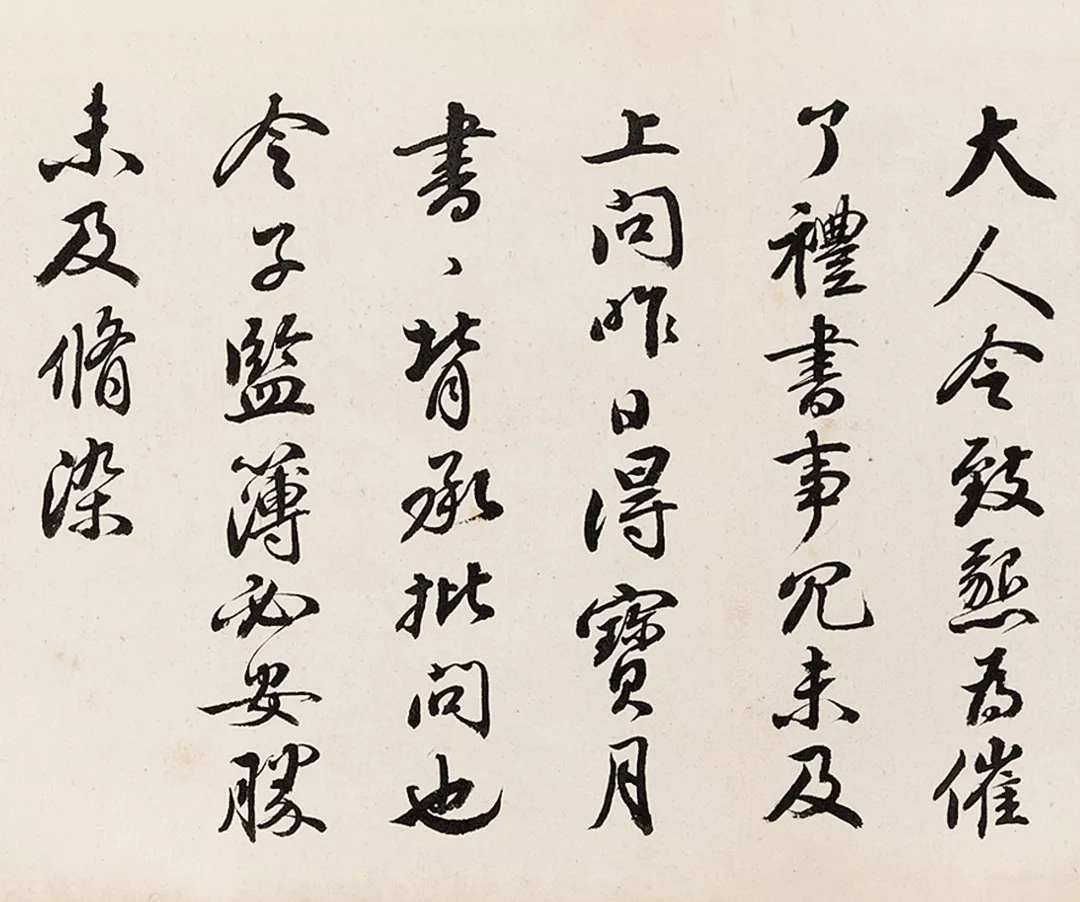 大人令致懇為催
了禮書事冗未及
上問昨日得寶月
書、背承批問也
令子監簿必安勝
未及脩染